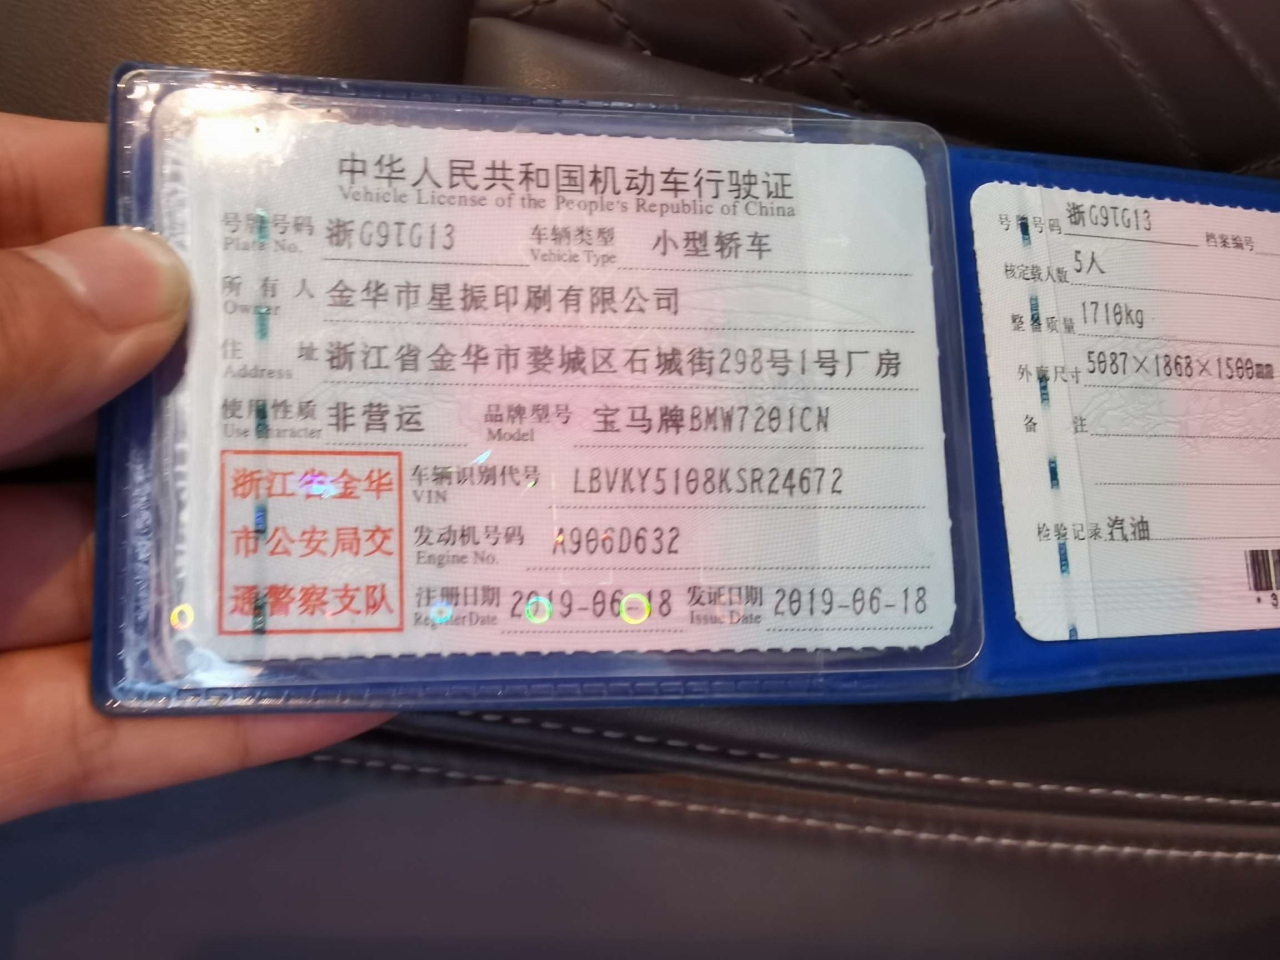 中华人民共和国机动车行驶证
Vehicle License of the People's Republic of China
号牌号码 浙G9TG13 车辆类型 小型轿车
Plate No. Vehicle Type
所有人 金华市星振印刷有限公司
Owner
住址 浙江省金华市婺城区石城街298号1号厂房
Address
使用性质 非营运 品牌型号 宝马牌BMW7201CN
Use Character Model
浙江省金华
市公安局交
通警察支队
车辆识别代号 LBVKY5108KSR24672
VIN
发动机号码 A906D632
Engine No.
注册日期 2019-06-18 发证日期 2019-06-18
Register Date Issue Date
号牌号码 浙G9TG13 档案编号
核定载人数 5人
整备质量 1710kg
外廓尺寸 5087×1868×1500mm
备注
检验记录 汽油